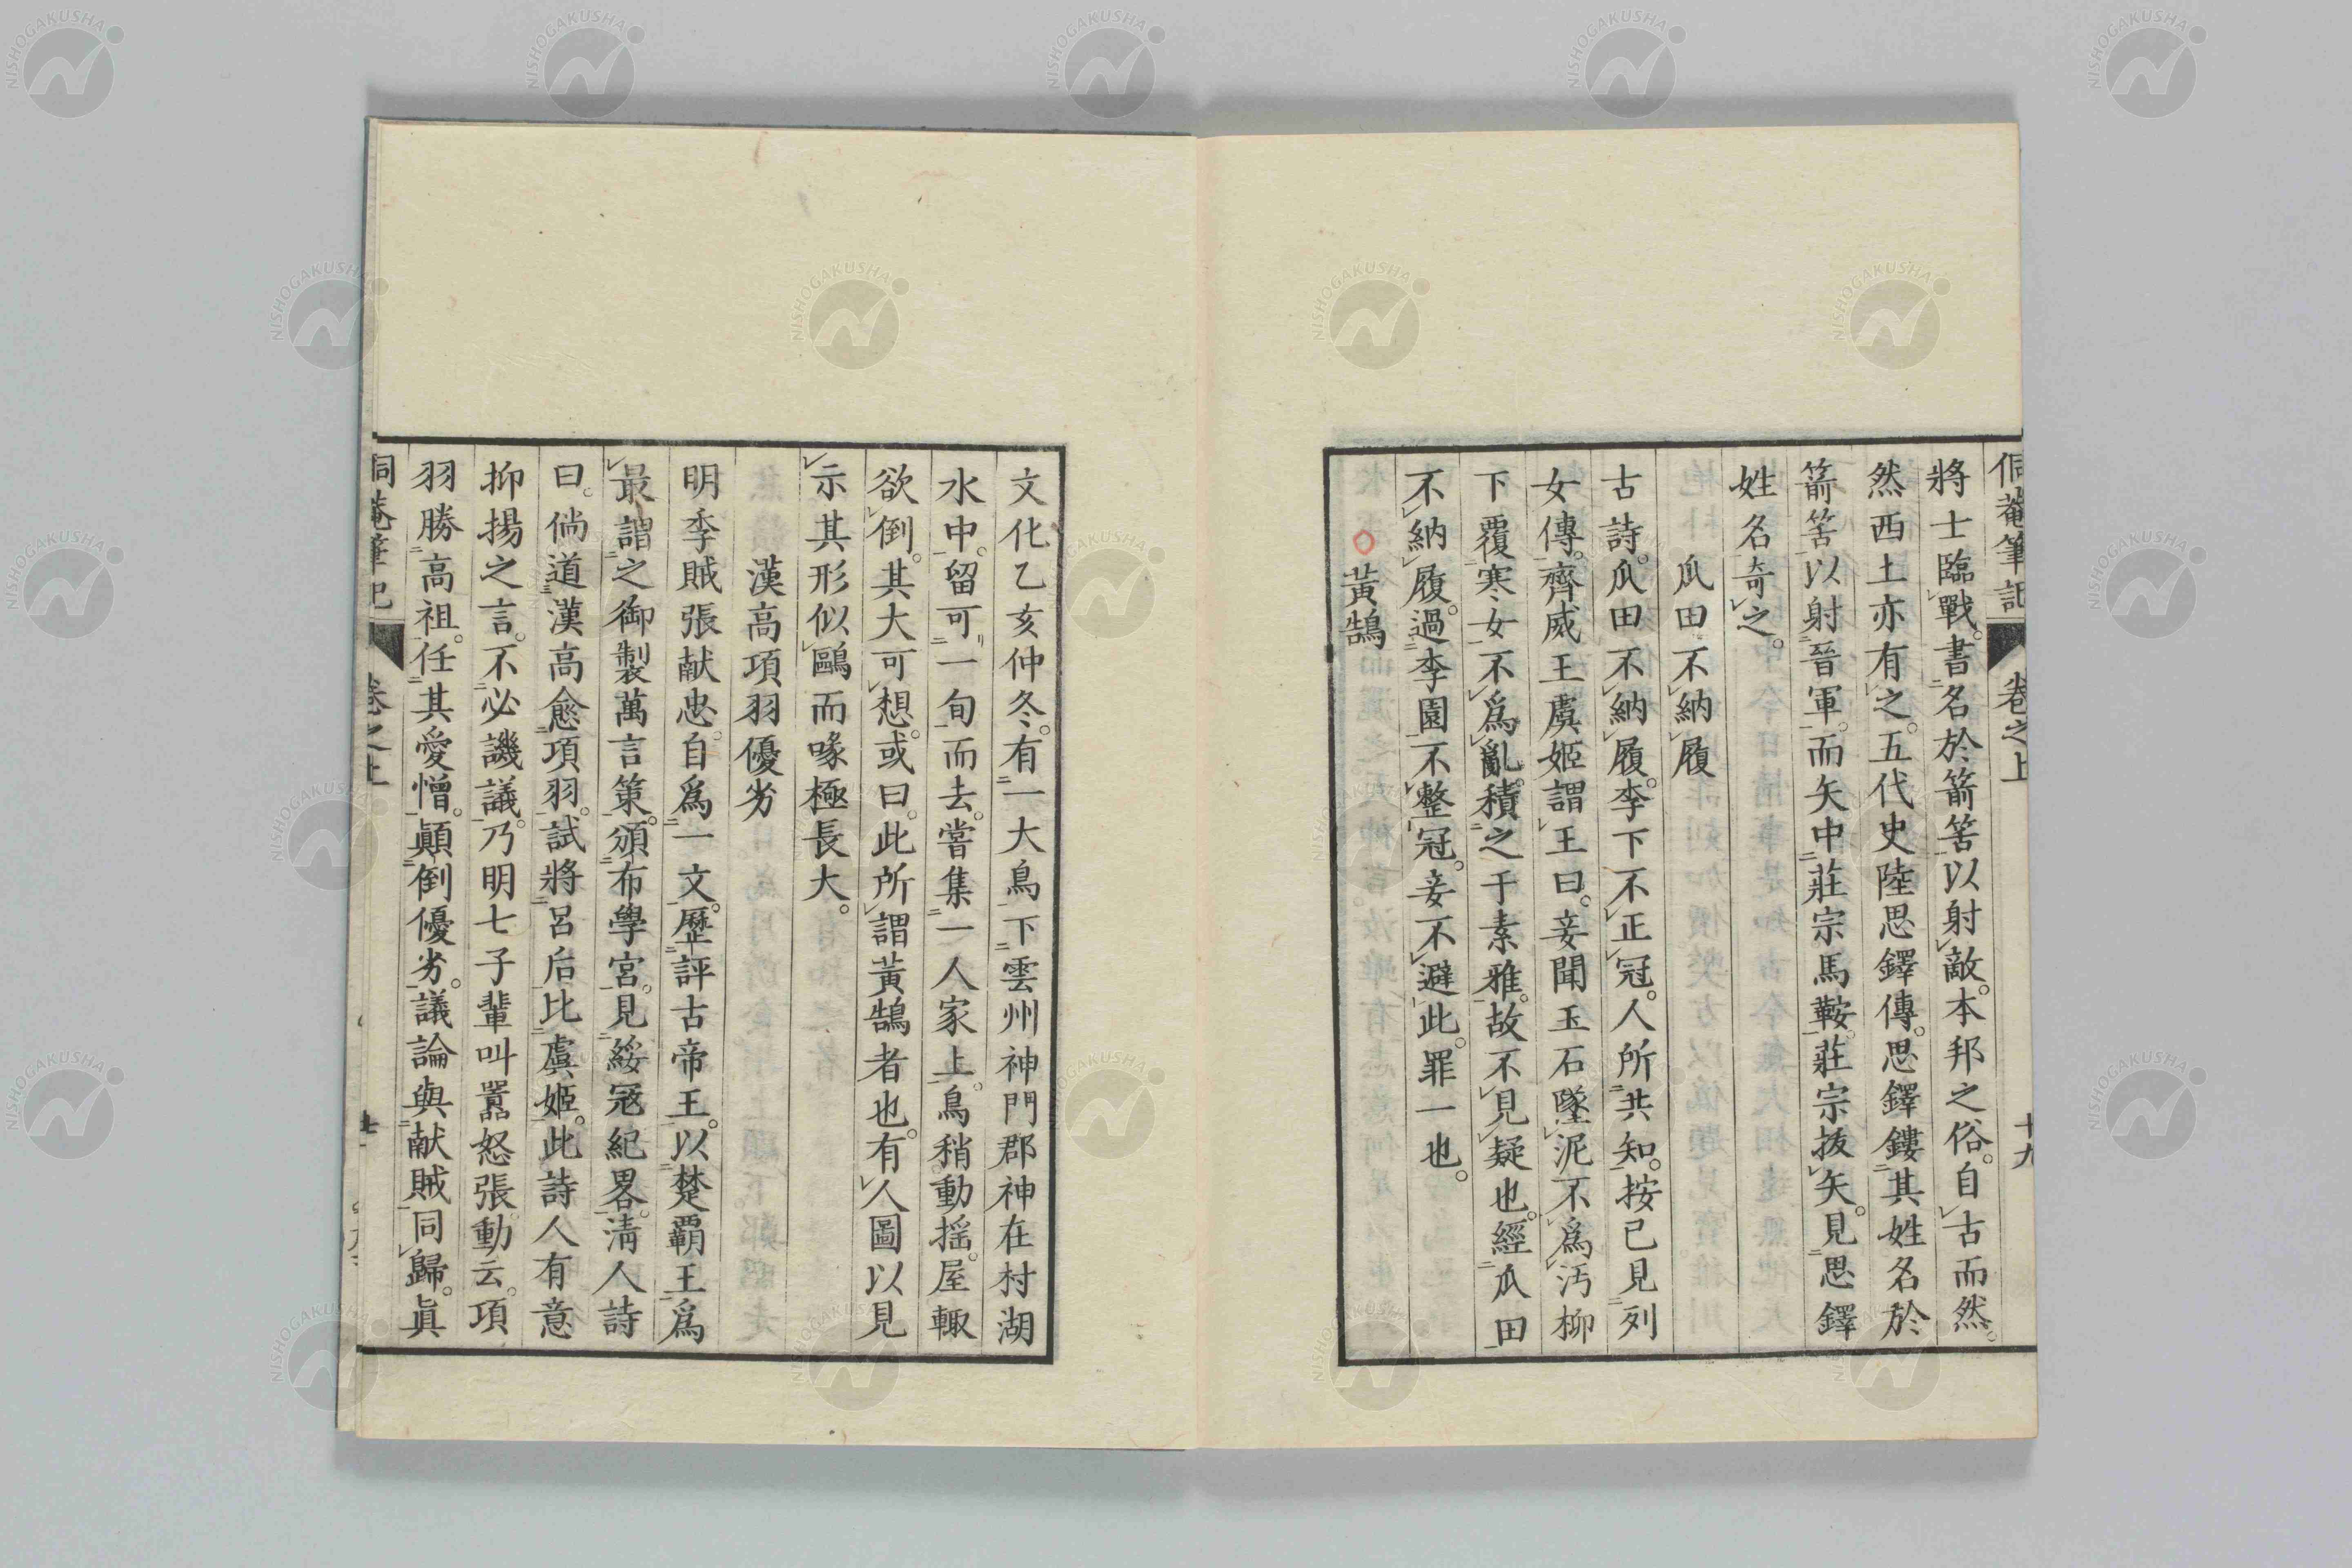 侗菴筆記 卷之上 十九
將士臨戰。書名於箭筈。以射敵。本邦之俗。自古而然。
然西土亦有之。五代史陸思鐸傳。思鐸鏤其姓名於
箭筈。以射晉軍。而矢中莊宗馬鞍。莊宗拔矢。見思鐸
姓名奇之。
瓜田不納履
古詩。瓜田不納履。李下不正冠。人所共知。按已見列
女傳。齊威王虞姬謂王曰。妾聞玉石墜泥不爲汚。柳
下覆寒女不爲亂。積之于素雅。故不見疑也。經瓜田
不納履。過李園不整冠。妾不避此。罪一也。
黃鵠
文化乙亥仲冬。有一大鳥下雲州神門郡神在村湖
水中。留可一旬而去。嘗集一人家上。鳥稍動搖。屋輙
欲倒。其大可想。或曰。此所謂黃鵠者也。有人圖以見
示其形似鷗而喙極長大。
漢高項羽優劣
明季賊張献忠。自爲一文。歷評古帝王。以楚覇王爲
最。謂之御製萬言策。頒布學宮。見綏寇紀畧。淸人詩
曰。倘道漢高愈項羽。試將呂后比虞姬。此詩人有意
抑揚之言。不必譏議。乃明七子輩叫囂怒張。動云。項
羽勝高祖。任其愛憎。顚倒優劣。議論與献賊同歸。眞
侗菴筆記 卷之上